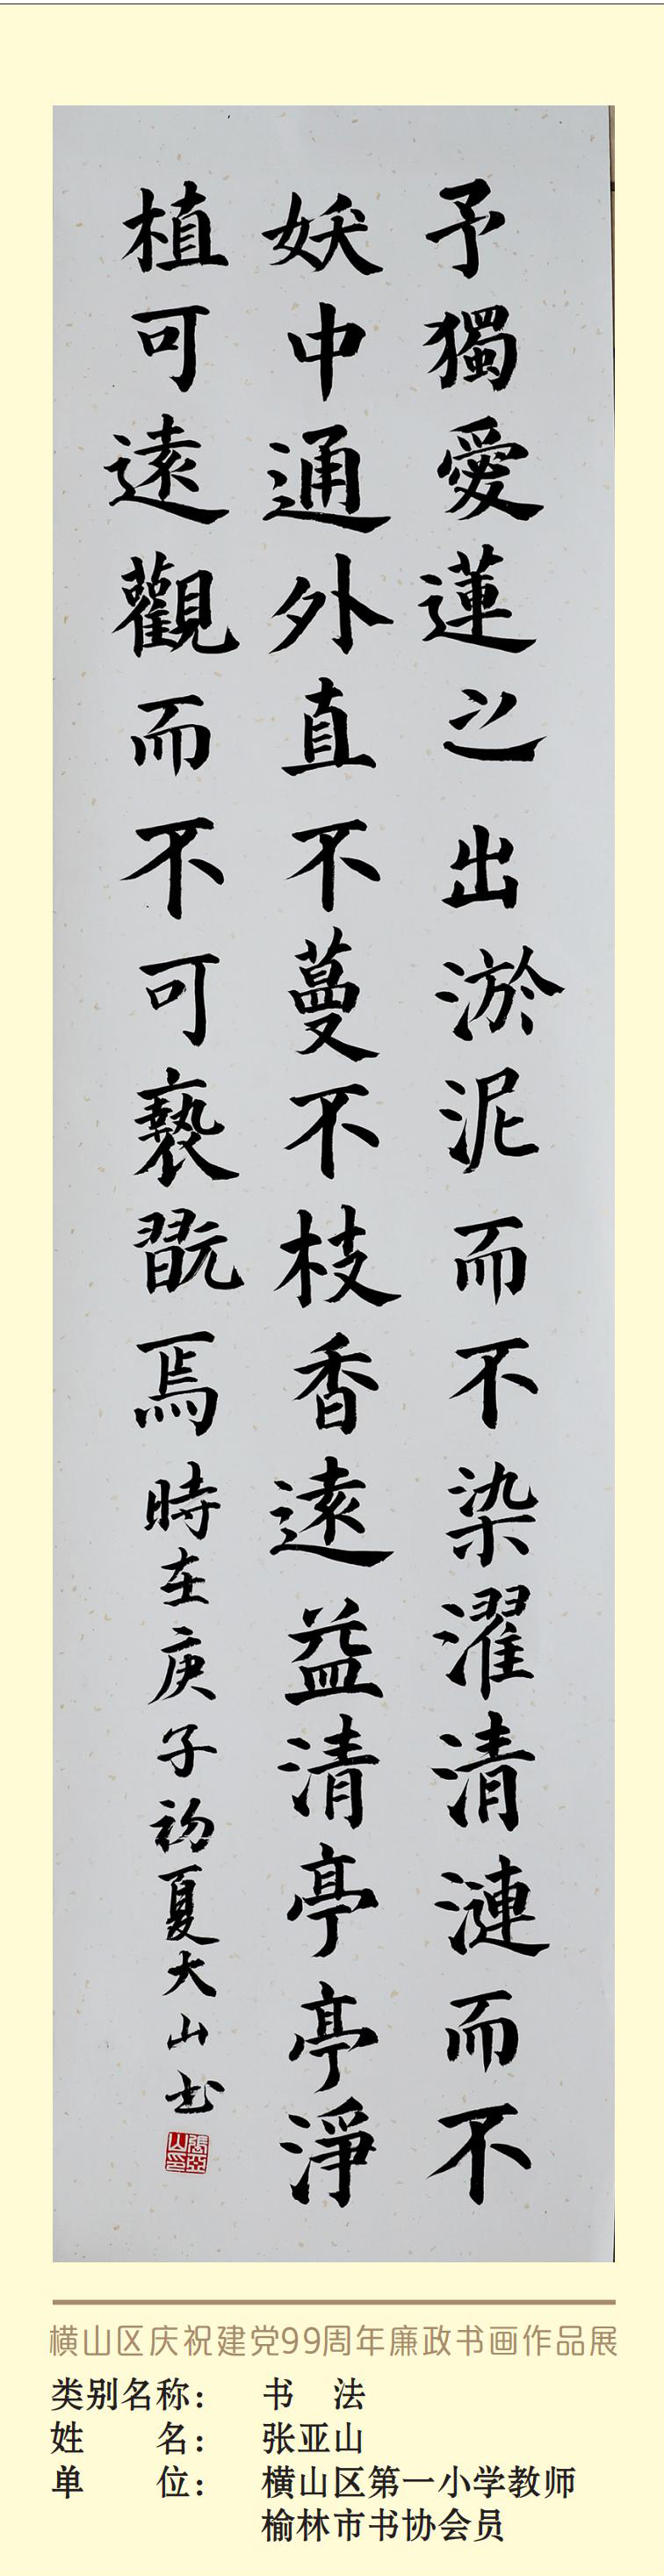 予獨愛蓮之出淤泥而不染濯清漣而不
妖中通外直不蔓不枝香遠益清亭亭淨
植可遠觀而不可褻翫焉時在庚子初夏大山书
張亞山印
横山区庆祝建党99周年廉政书画作品展
类别名称： 书 法
姓 名： 张亚山
单 位： 横山区第一小学教师
榆林市书协会员